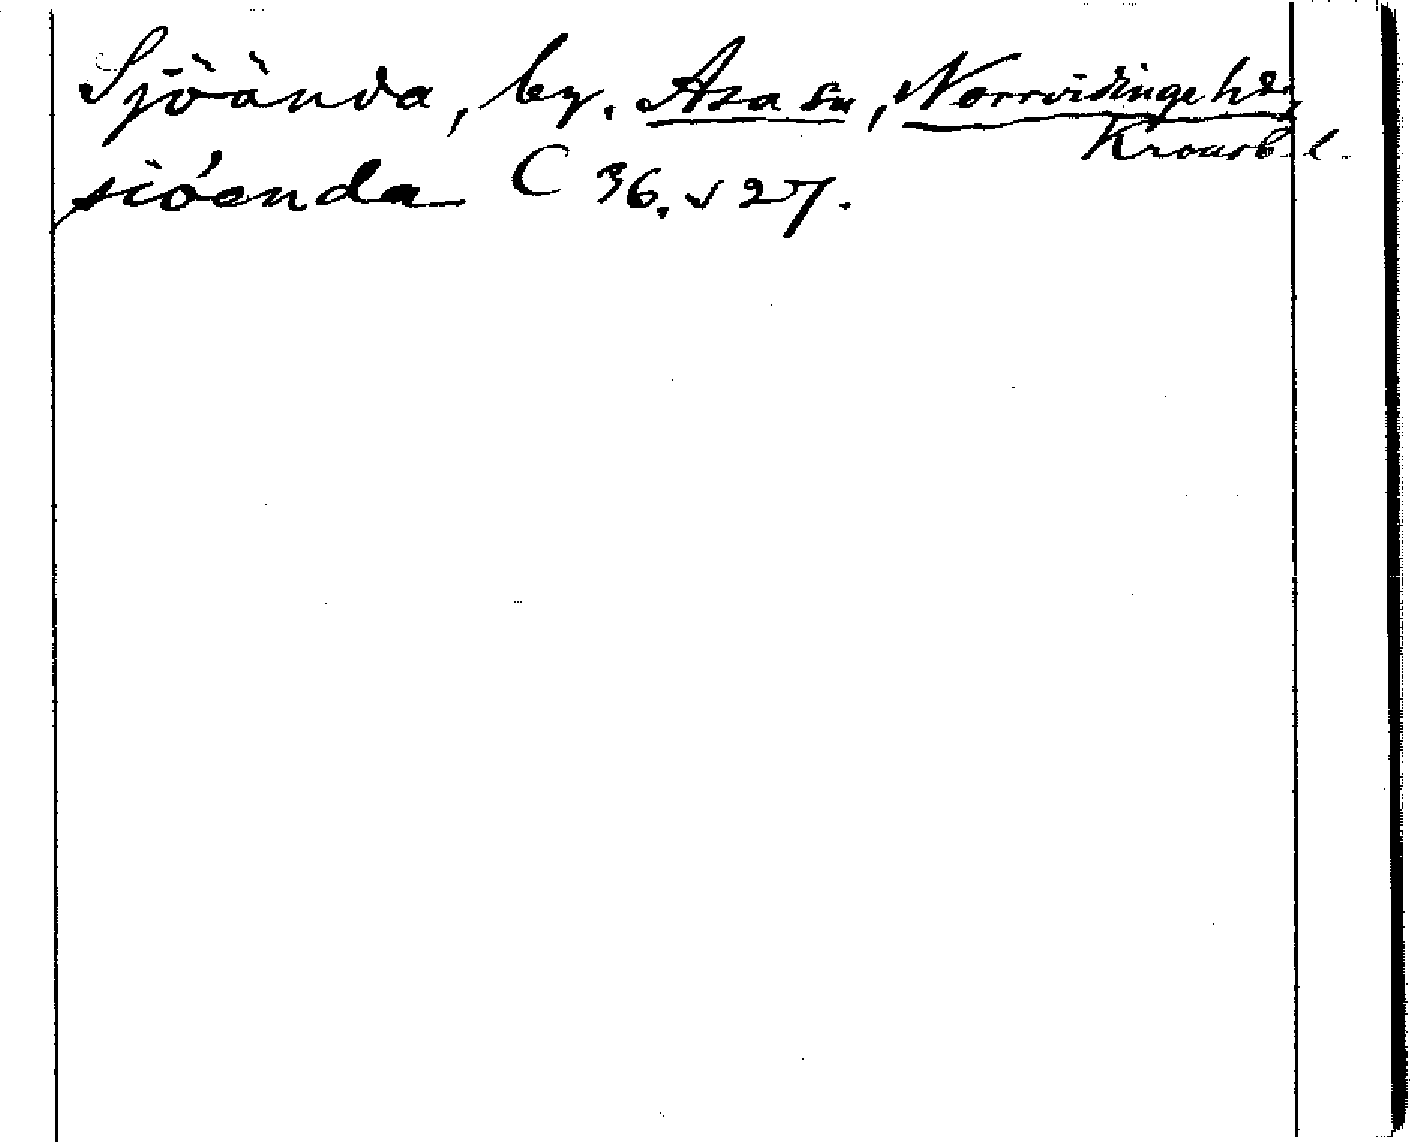 Sjöända, by. Asa sn, Norrvidinge hd.
Kronob. l.
sióenda C 36. v 27.